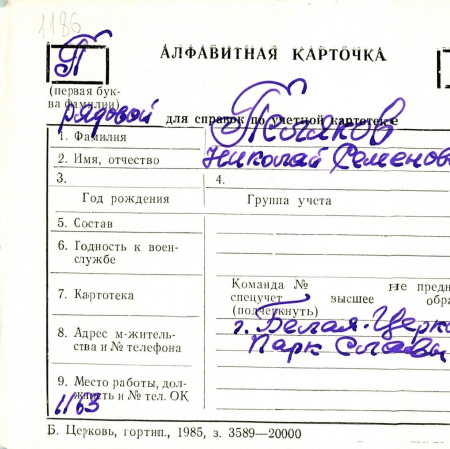 1186
АЛФАВИТНАЯ КАРТОЧКА
П
(первая бук-
ва фамилии)
рядовой
для справок по учетной картотеке
1. Фамилия
2. Имя, отчество Николай Семенов
3. 4.
Год рождения Группа учета
5. Состав
6. Годность к воен-
службе
7. Картотека
Команда № не предн
спецучет высшее обра
(подчеркнуть)
8. Адрес м-житель-
ства и № телефона
г. Белая-Церк
Парк Славы
9. Место работы, дол-
жность и № тел. ОК
1163
Б. Церковь, гортип., 1985, з. 3589—20000